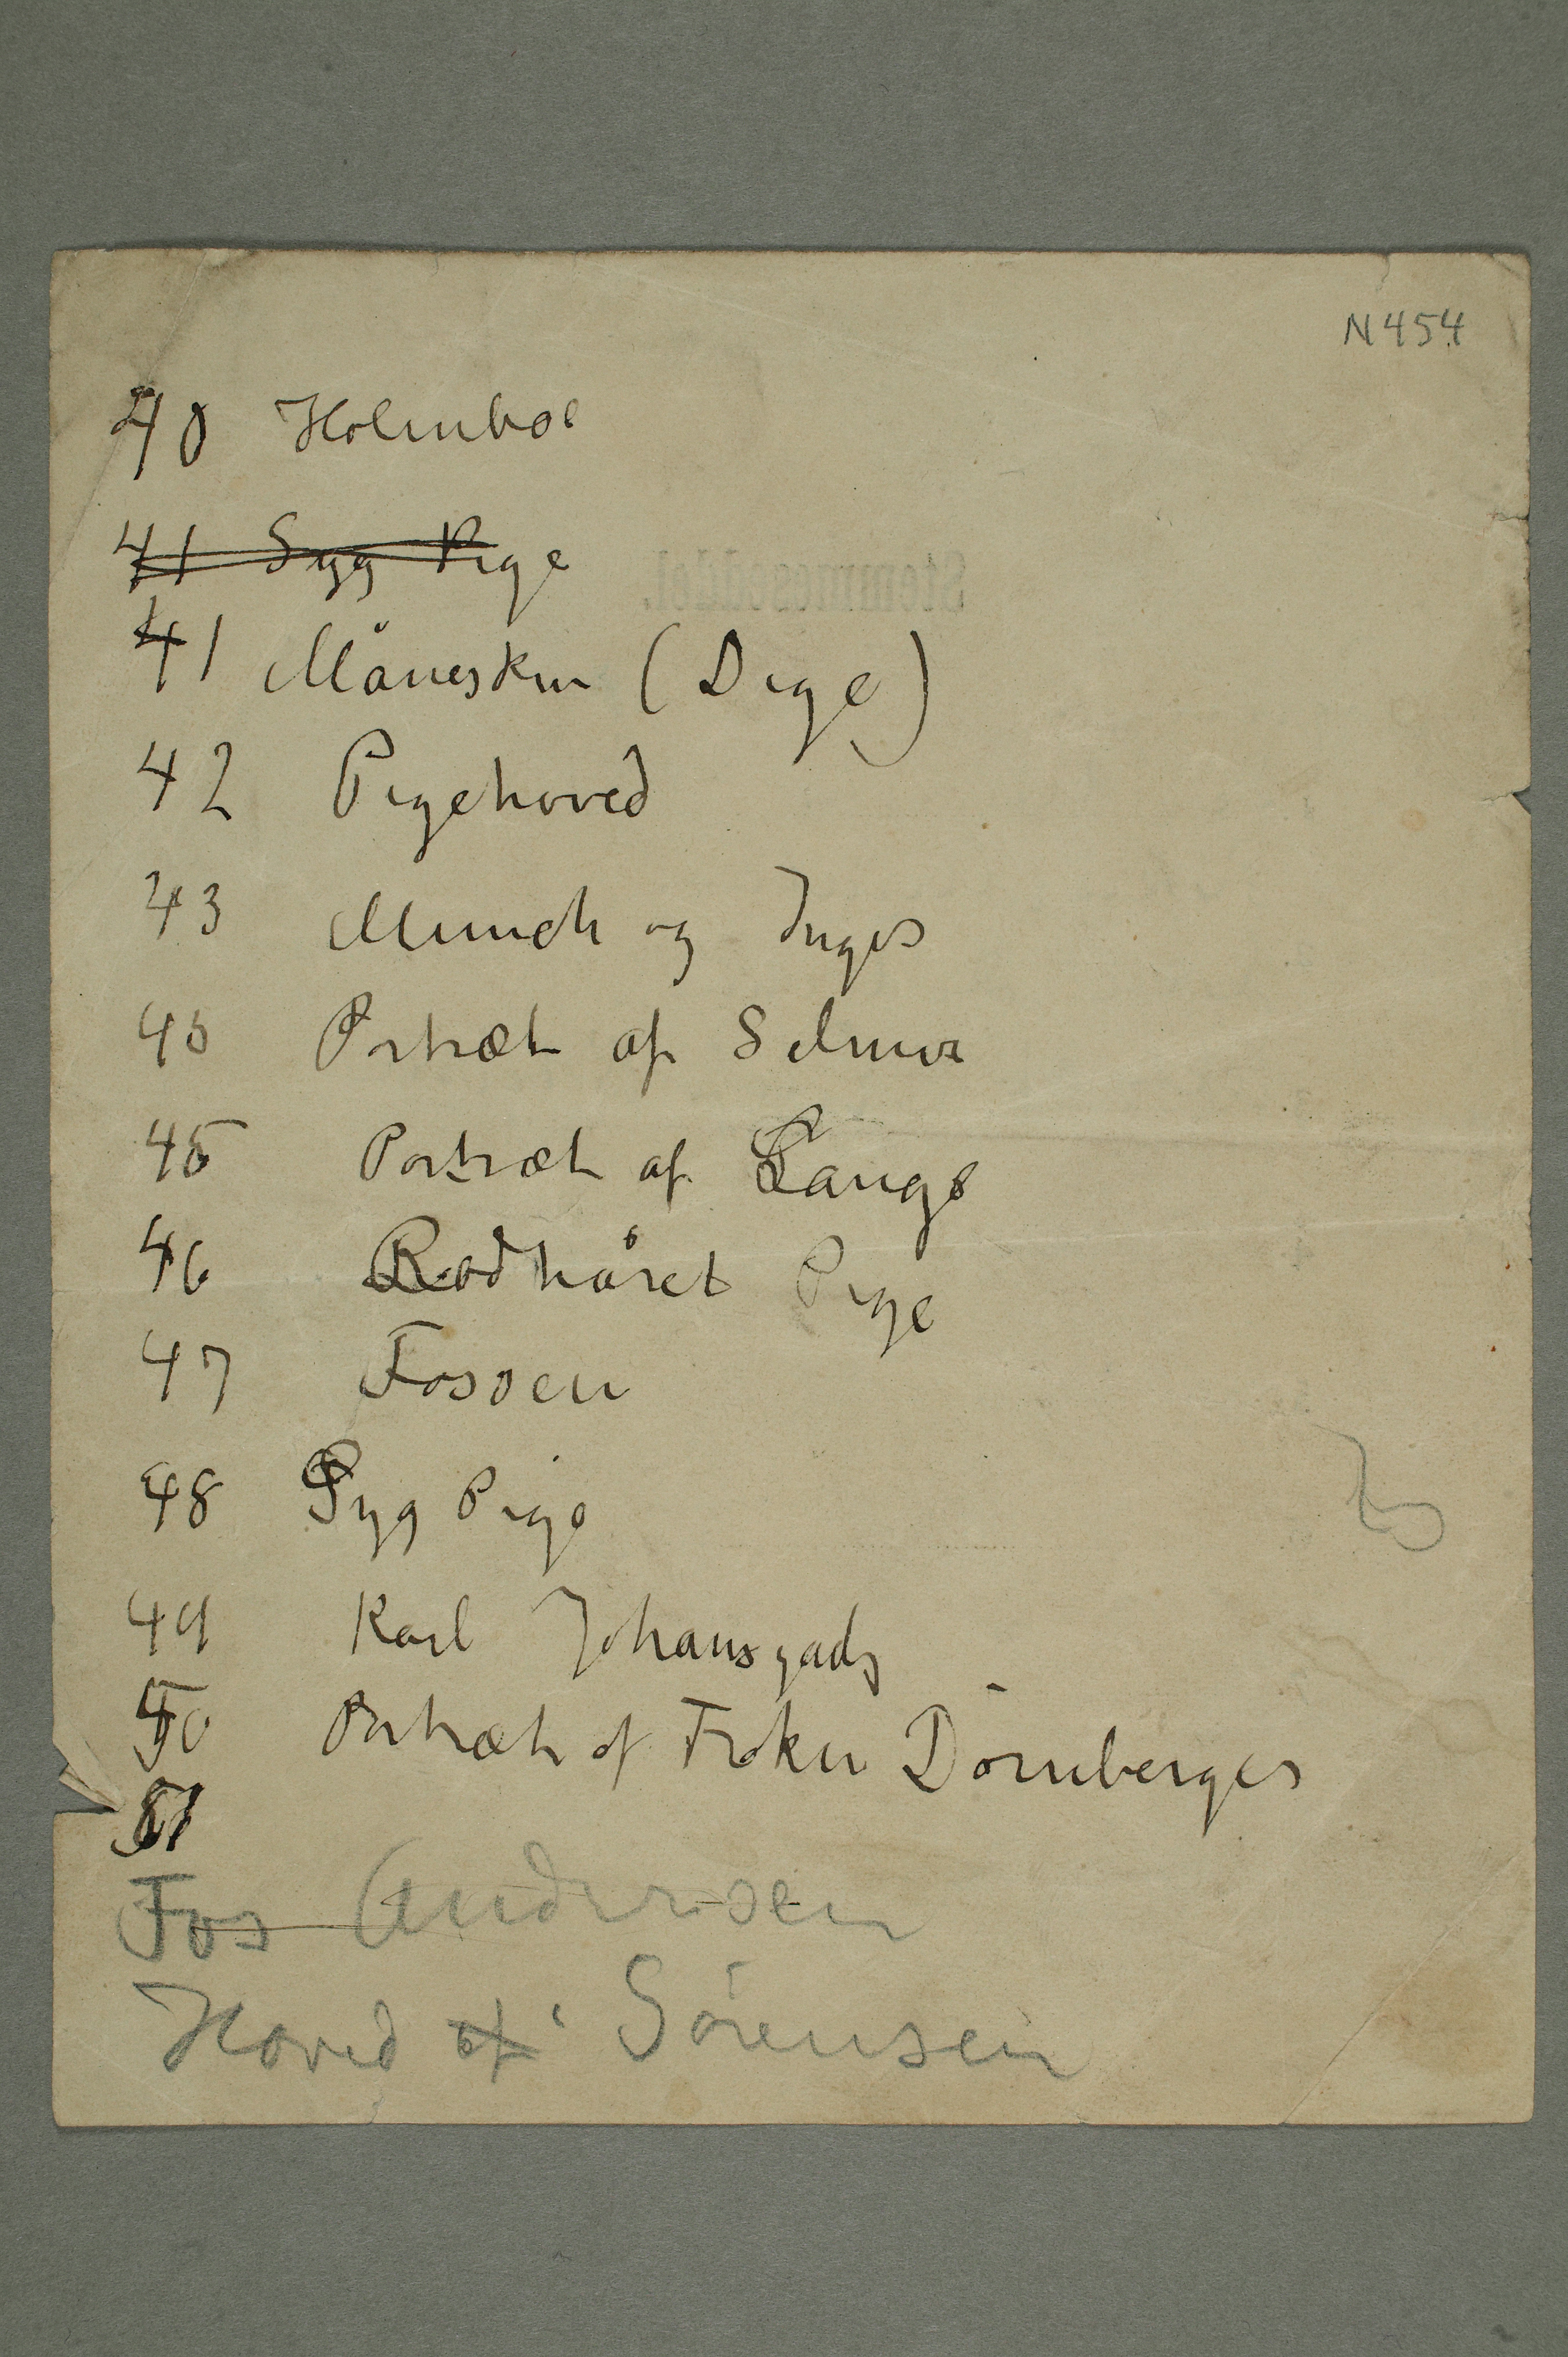 N 454
40 Holmboe
41 Syg Pige
Stemmeseddel.
41 Måneskin (Dige)
42 Pigehoved
43 Munch og Inger
45 Portræt af Selmer
45 Portræt af Lange
46 Rødhåret Pige
47 Fossen
48 Syg Pige
49 Karl Johansgade
50 Portræt af Frøken Dörnberger
51
Fos Andersen
Hoved af Sörensen